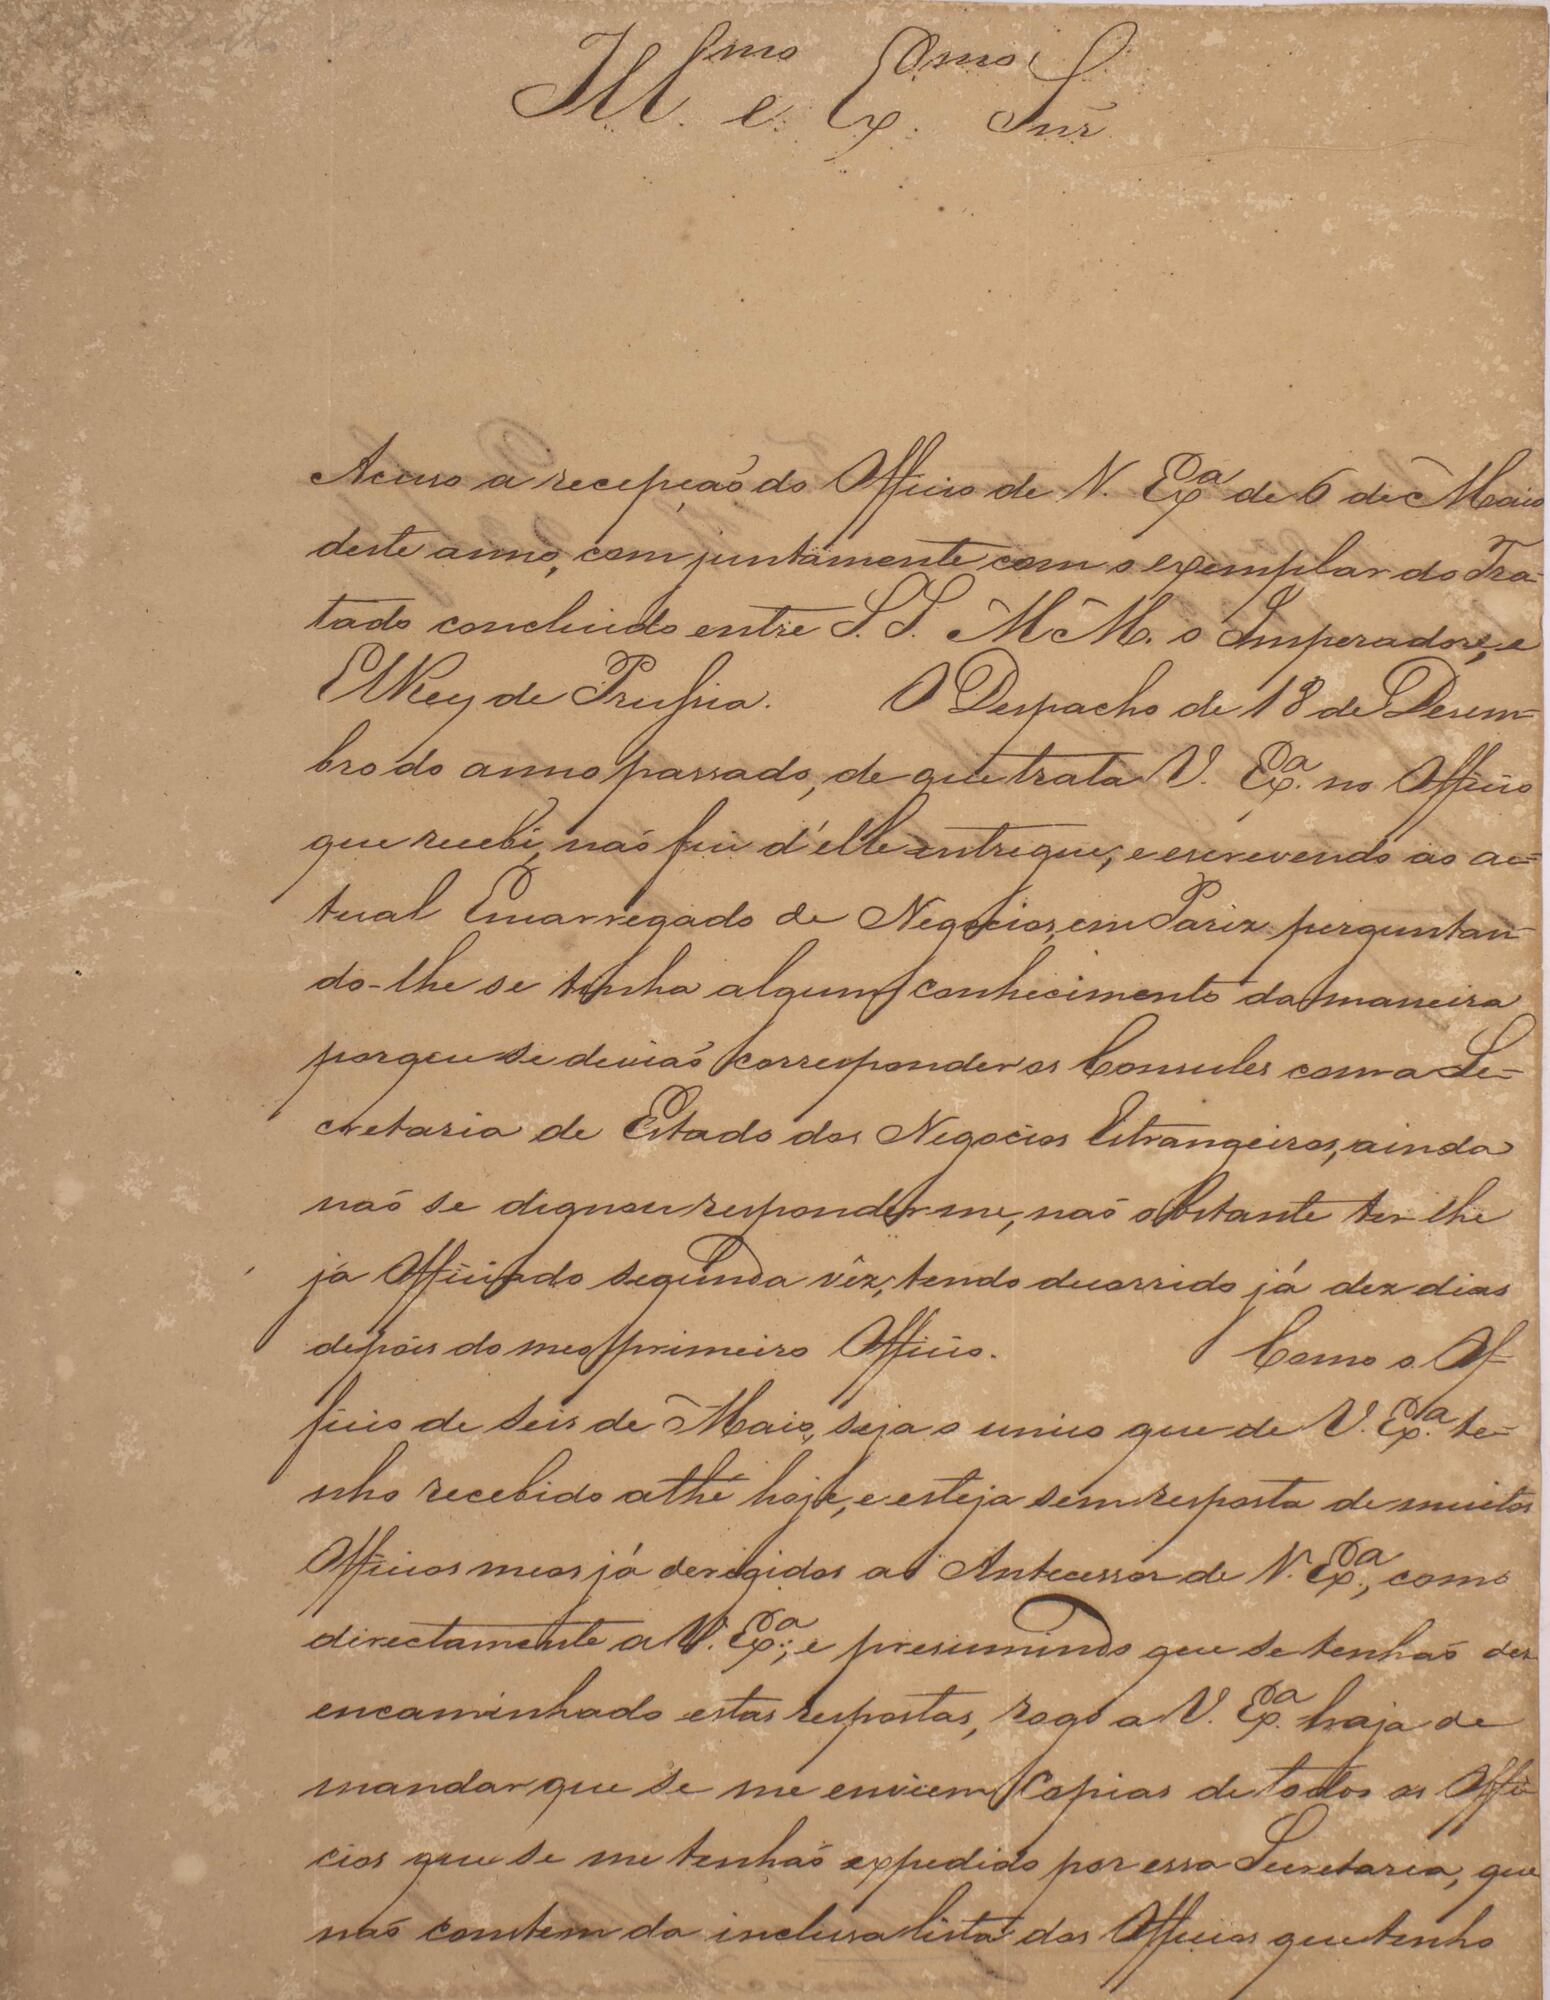 Ill.mo e Ex.mo Snr
Accuso a recepçaõ do Officio de V. Ex.a de 6 de Maio
deste anno, com juntamente com o exemplar do Tra-
tado concluido entre S. S. M M. o Imperador, e
ElRey de Prussia. O Despacho de 18 de Desem-
bro do anno passado, de que trata V. Ex.a no Officio
que recebi, naõ fui d'elle entregue, e escrevendo ao ac-
tual Encarregado de Negocios, em Pariz perguntan-
do-lhe se tinha algum conhecimento da maneira
porque se deviaõ corresponder os Consules com a Se-
cretaria de Estado dos Negocios Estrangeiros, ainda
naõ se dignou responder me, naõ obstante ter lhe
já Officiado segunda vêz, tendo decorrido já dez dias
depois do meo primeiro Officio. Como o Of-
ficio de seis de Maio, seja o unico que de V. Ex.a te-
nho recebido athé hoje, e esteja sem resposta de muitos
Officios meos já derigidos ao Antecessor de V. Ex.a, como
directamente a V. Ex.a; e presumindo que se tenhaõ des
encaminhado estas respostas, rogo a V. Ex.a haja de
mandar que se me enviem Copias de todos os Offi-
cios que se me tenhaõ expedido por essa Secretaria, que
naõ constem da inclusa lista dos Officios que tenho